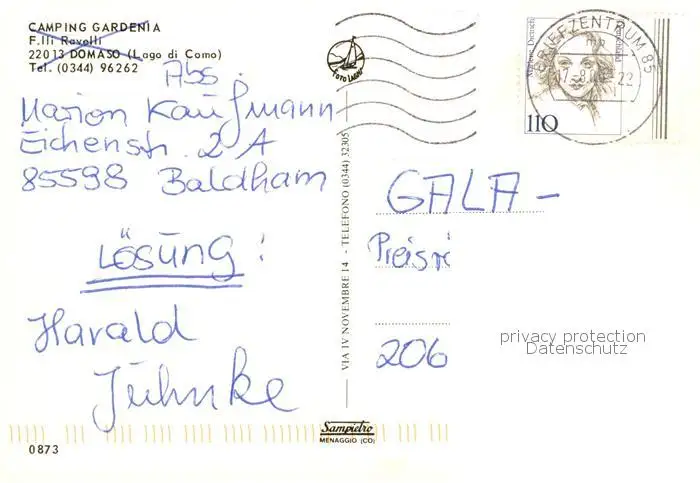 CAMPING GARDENIA
F.lli Ravelli
22013 DOMASO (Lago di Como)
Tel. (0344) 96262
Abs.
Marion Kaufmann
Eichenstr. 2 A
85598 Baldham
LÖSUNG!
Harald
Juhnke
0873
FOTO LAGHI
VIA IV NOVEMBRE 14 - TELEFONO (0344) 32305
Sampietro
MENAGGIO (CO)
Marlene Dietrich
Deutschland
110
BRIEFZENTRUM 85
22
GALA-
Preisr
206
privacy protection
Datenschutz